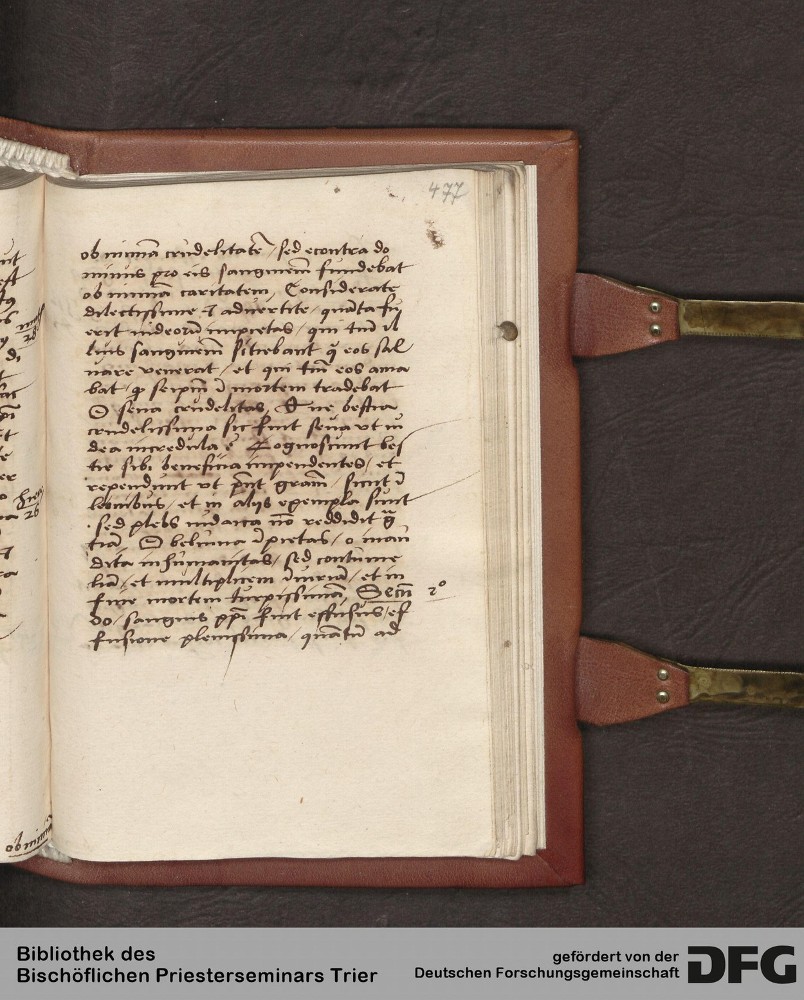 477
ob nimiā crudelitatē / sed econtra do
minus pro eis sanguinem fundebat
ob nimiā caritatem, Considerate
dilectissime et aduertite, quāta fu
erit iudeorū impietas, qui tm̄ il
lius sanguinem sitiebant q̄ eos sal
uare venerat, et qui tm̄ eos ama
bat, qp seipm̄ ī mortem tradebat
O seua crudelitas, bestia
crudelissima sic fuit seua vt iu
dea incredula ē Cognoscunt bes
tie sibi beneficia impendentes, et
rependunt vt pn̄t gram̄, sicut ī
leonibus, et in alijs exempla sunt
sed plebs iudaica nō reddidit gͣ
tiā, O beluina īpietas, o inau
dita inhumanitas, sed contume
liā, et multiplicem īiuriā, et in
fine mortem turpissimā, Secū
2º
do, sanguis xp̄i fuit effusus, ef
fusione plenissima, quātū ad
ob nimiā
Bibliothek des
Bischöflichen Priesterseminars Trier
gefördert von der
Deutschen Forschungsgemeinschaft
DFG